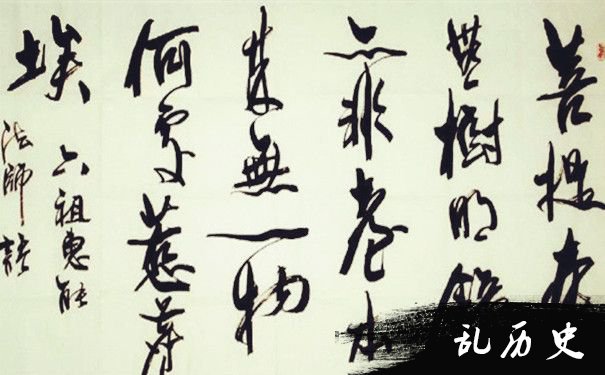 菩提本
無樹明鏡
亦非臺本
來無一物
何處惹塵
埃 六祖惠能
法師語
乱历史